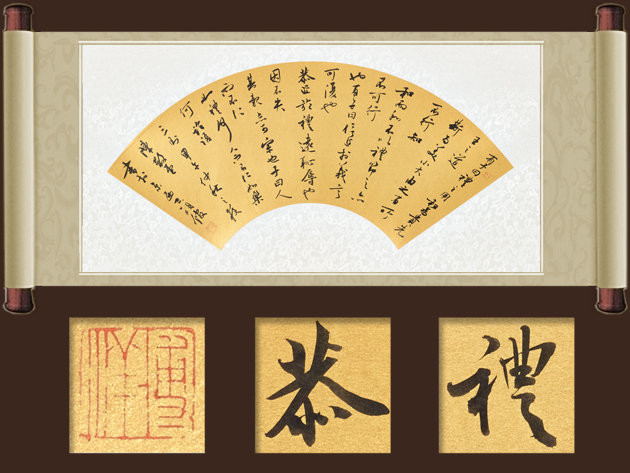 有子曰
禮之用和為貴先
王之道
斯為美小大由之有所
不行知
和而和不以禮節之亦
不可行
也有子曰信近於義言
可復也
恭近於禮遠恥辱也
因不失
其親亦可宗也子曰人
而不仁
如禮何人而不仁如樂
何
論語
甲午仲秋之夜
三則
恭
禮